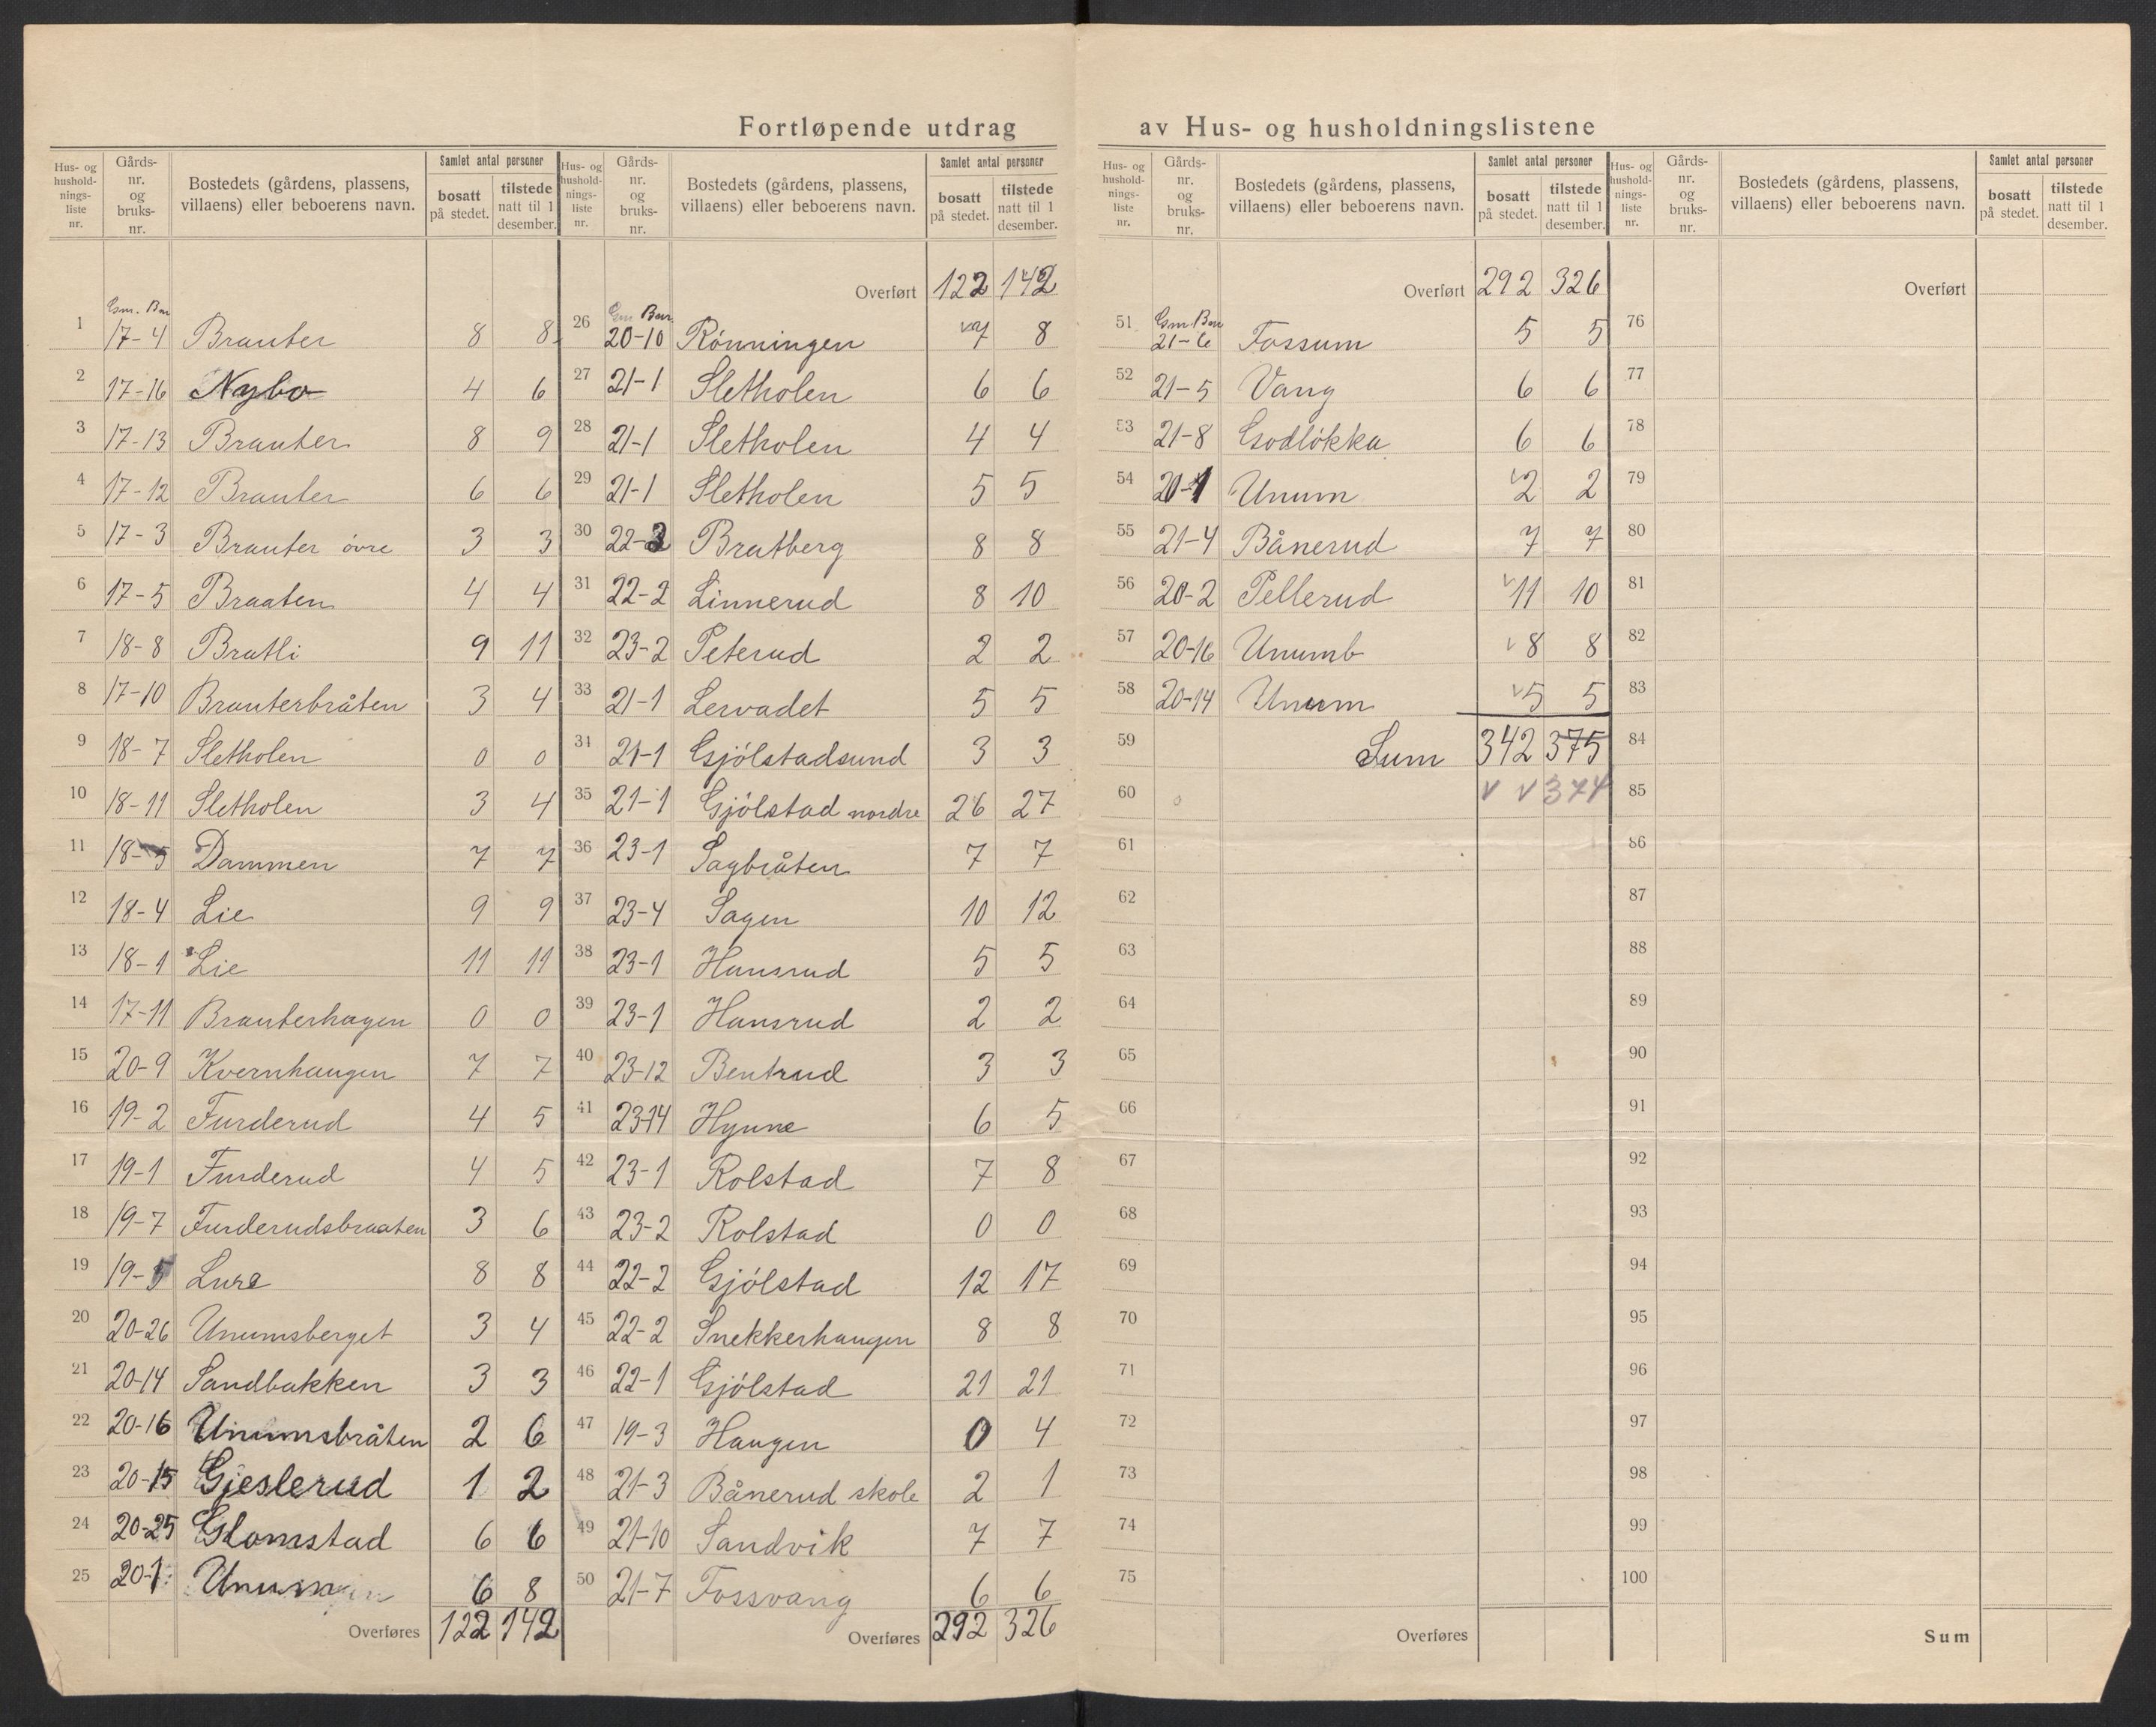 Fortløpende utdrag av Hus- og husholdningslistene
Hus- og hushold-nings-liste nr. | Gårds-nr. og bruks-nr. | Bostedets (gårdens, plassens, villaens) eller beboerens navn. | Samlet antal personer | bosatt på stedet. | tilstede natt til 1 desember.
Gnr. Bnr
1 17-4 Branter 8 8
2 17-16 Nybo 4 6
3 17-13 Branter 8 9
4 17-12 Branter 6 6
5 17-3 Branter øvre 3 3
6 17-5 Braaten 4 4
7 18-8 Bratli 9 11
8 17-10 Branterbråten 3 4
9 18-7 Sletholen 0 0
10 18-11 Sletholen 3 4
11 18-5 Dammen 7 7
12 18-4 Lie 9 9
13 18-1 Lie 11 11
14 17-11 Branterhagen 0 0
15 20-9 Kvernhaugen 7 7
16 19-2 Furderud 4 5
17 19-1 Furderud 4 5
18 19-7 Furderudsbraaten 3 6
19 19-5 Lure 8 8
20 20-26 Unumsberget 3 4
21 20-14 Sandbakken 3 3
22 20-16 Unumsbråten 2 6
23 20-15 Gjeslerud 1 2
24 20-25 Glomstad 6 6
25 20-1 Unum 6 8
Overføres 122 142
Hus- og hushold-nings-liste nr. | Gårds-nr. og bruks-nr. | Bostedets (gårdens, plassens, villaens) eller beboerens navn. | Samlet antal personer | bosatt på stedet. | tilstede natt til 1 desember.
Overført 122 142
Gnr Bnr.
26 20-10 Rönningen 7 8
27 21-1 Sletholen 6 6
28 21-1 Sletholen 4 4
29 21-1 Sletholen 5 5
30 22-3 Bratberg 8 8
31 22-2 Linnerud 8 10
32 23-2 Peterud 2 2
33 21-1 Lervadet 5 5
34 21-1 Gjölstadsund 3 3
35 21-1 Gjölstad nordre 26 27
36 23-1 Sagbråten 7 7
37 23-4 Sagen 10 12
38 23-1 Hansrud 5 5
39 23-1 Hansrud 2 2
40 23-12 Bentrud 3 3
41 23-14 Hynne 6 5
42 23-1 Rolstad 7 8
43 23-2 Rolstad 0 0
44 22-2 Gjölstad 12 17
45 22-2 Snekkerhaugen 8 8
46 22-1 Gjölstad 21 21
47 19-3 Haugen 0 4
48 21-3 Bånerud skole 2 1
49 21-10 Sandvik 7 7
50 21-7 Fossvang 6 6
Overføres 292 326
Hus- og hushold-nings-liste nr. | Gårds-nr. og bruks-nr. | Bostedets (gårdens, plassens, villaens) eller beboerens navn. | Samlet antal personer | bosatt på stedet. | tilstede natt til 1 desember.
Overført 292 326
Gnr Bnr
51 21-6 Fossum 5 5
52 21-5 Vang 6 6
53 21-8 Godlökka 6 6
54 20-1 Unum 2 2
55 21-4 Bånerud 7 7
56 20-2 Pellerud 11 10
57 20-16 Unumb 8 8
58 20-14 Unum 5 5
59 Sum 342 375
60 374
61
62
63
64
65
66
67
68
69
70
71
72
73
74
75
Overføres
Hus- og hushold-nings-liste nr. | Gårds-nr. og bruks-nr. | Bostedets (gårdens, plassens, villaens) eller beboerens navn. | Samlet antal personer | bosatt på stedet. | tilstede natt til 1 desember.
Overført
76
77
78
79
80
81
82
83
84
85
86
87
88
89
90
91
92
93
94
95
96
97
98
99
100
Sum